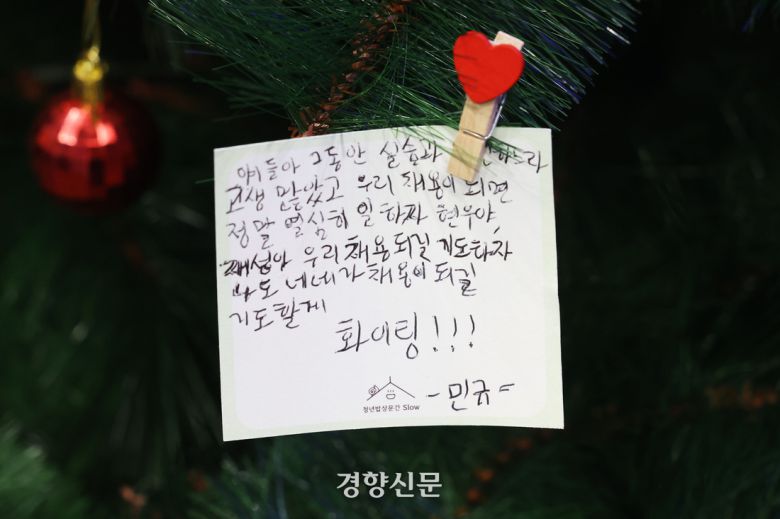 얘들아 그동안 실습과 하느라
고생 많았고 우리 채용이 되면
정말 열심히 일하자 현우야,
재성아 우리 채용되길 기도하자
나도 네네가 채용이 되길
기도할게
화이팅!!!
- 민규 =
청년밥상문간 Slow
경향신문